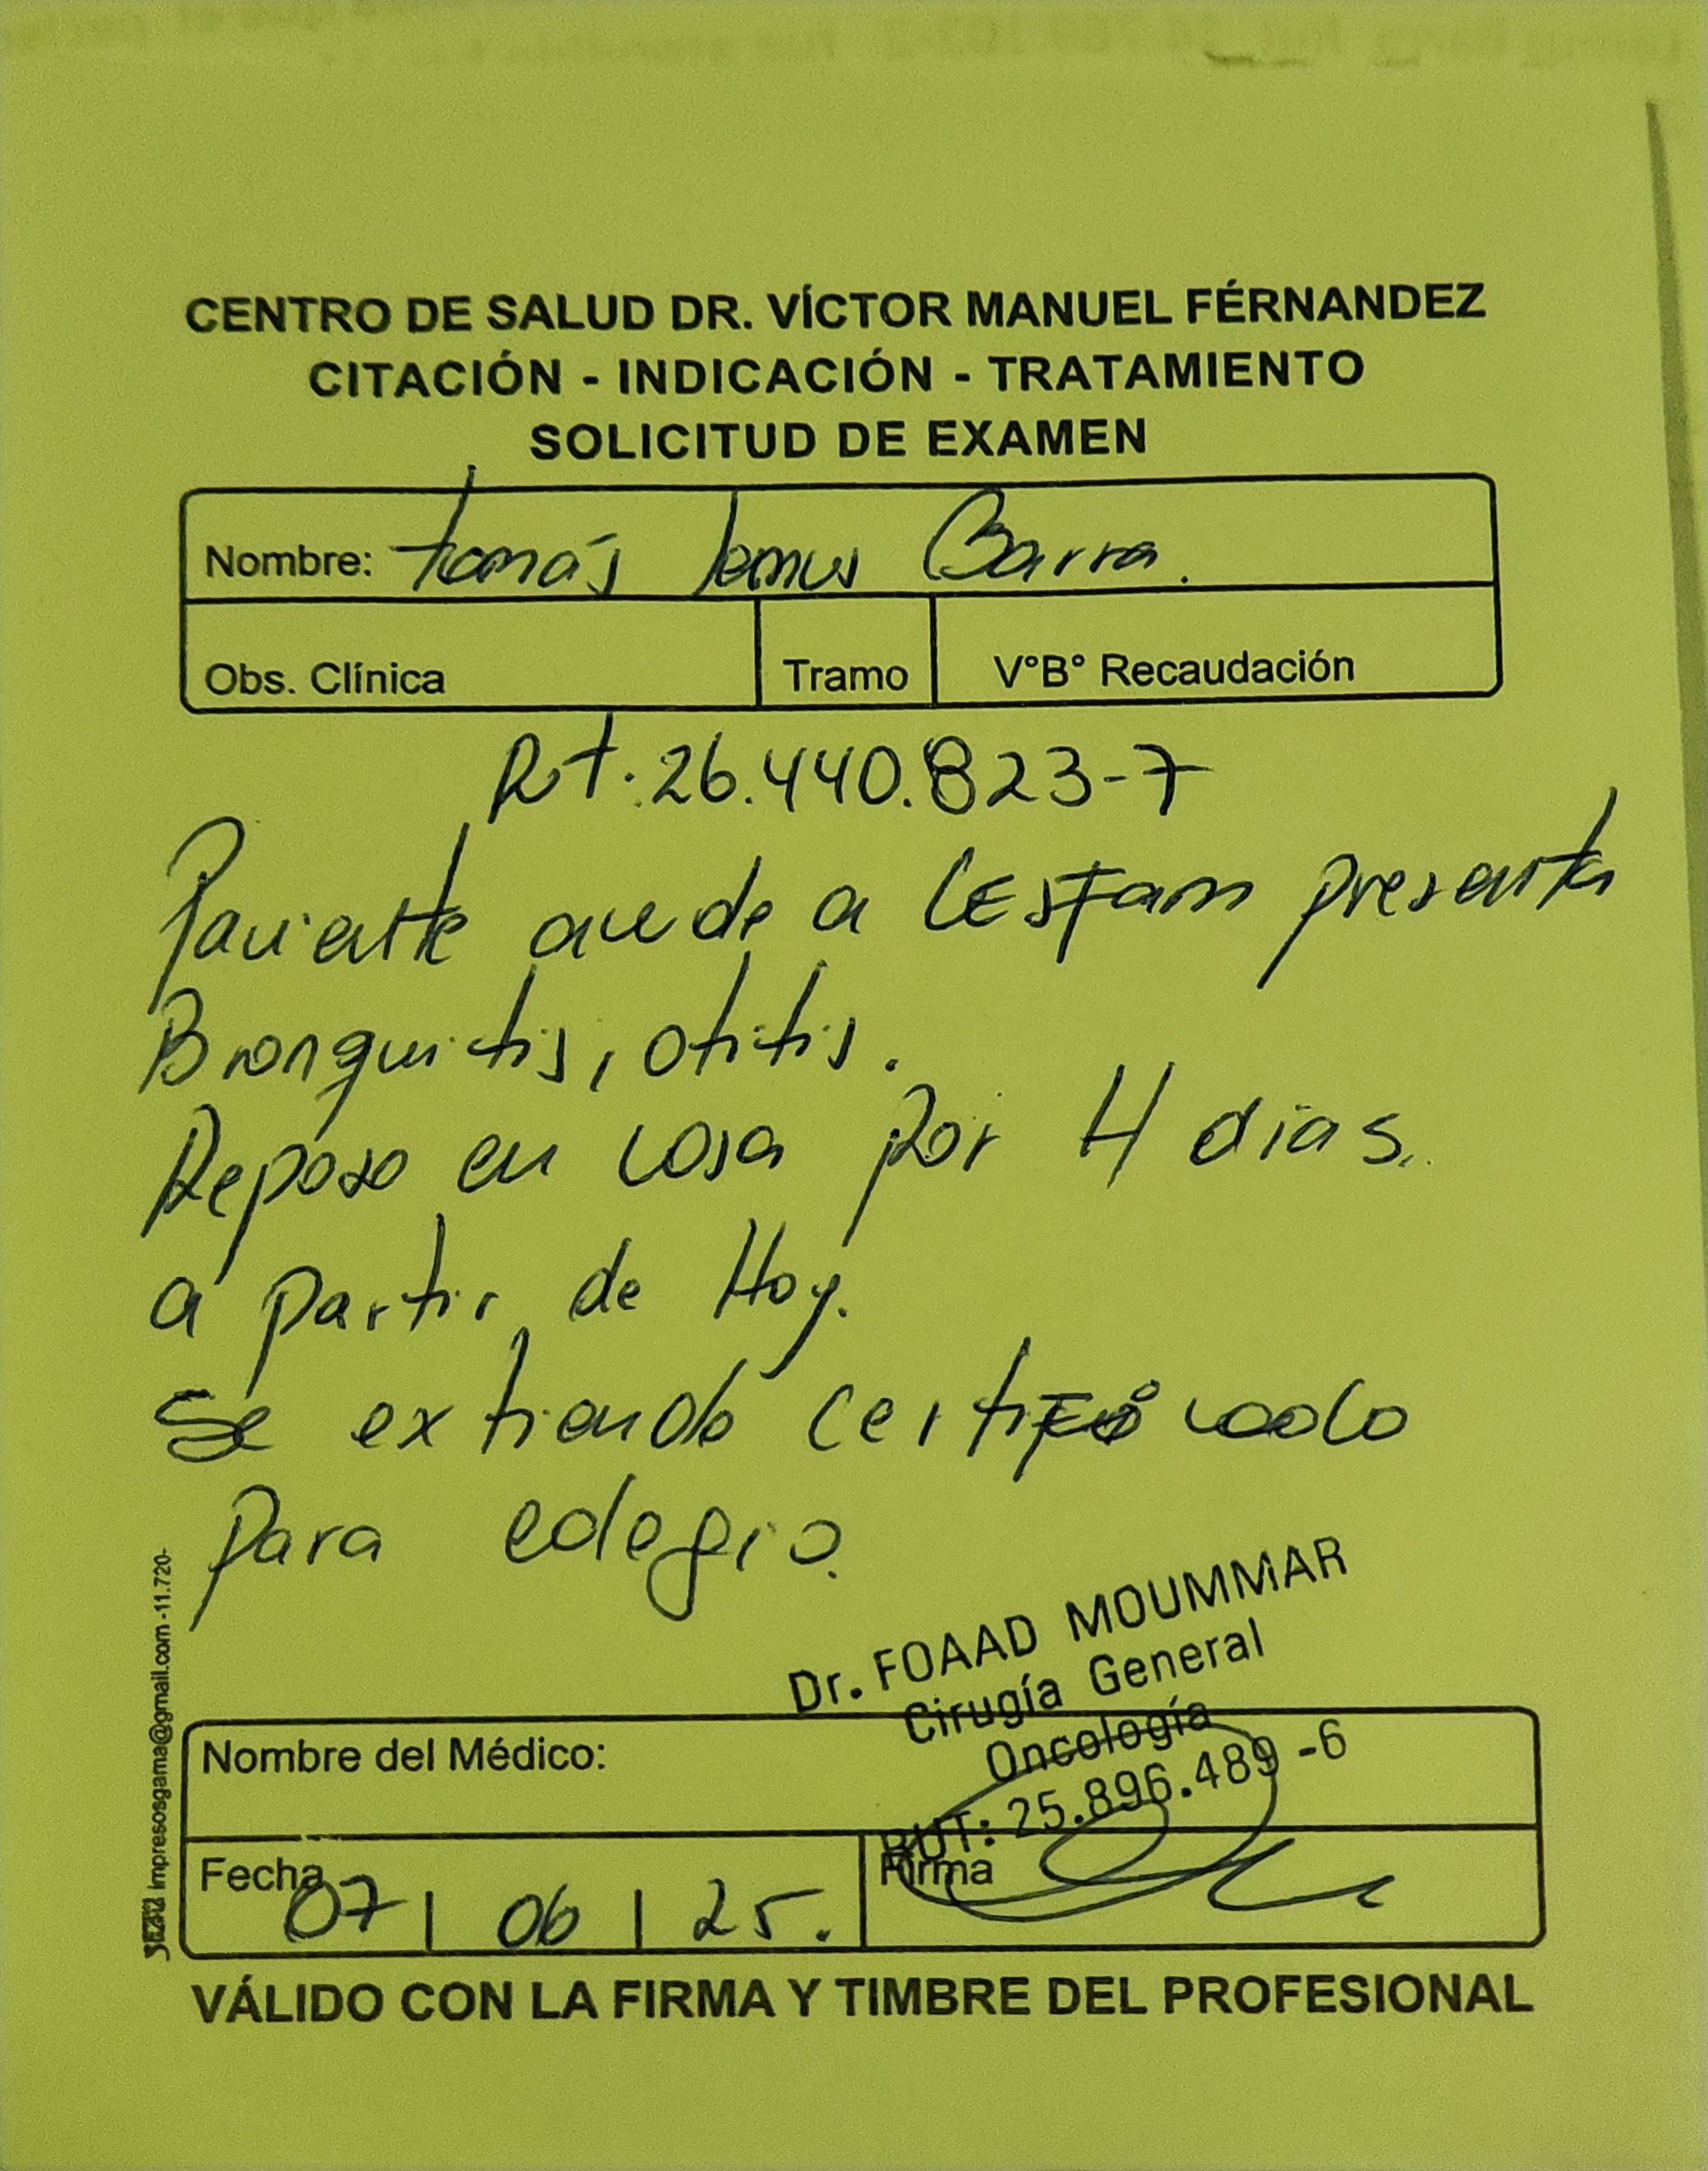 CENTRO DE SALUD DR. VÍCTOR MANUEL FÉRNANDEZ
CITACIÓN - INDICACIÓN - TRATAMIENTO
SOLICITUD DE EXAMEN
Nombre: tomás lemus Barra.
Obs. Clínica Tramo V°B° Recaudación
Rut: 26.440.823-7
Paciente acude a CESFam presenta
Bronquitis, otitis.
Reposo en casa por 4 dias.
a partir de Hoy.
Se extiende certificado
Para colegio.
Dr. FOAAD MOUMMAR
Cirugía General
Oncología
RUT: 25.896.489-6
Nombre del Médico:
Fecha 07 | 06 | 25.
Firma
VÁLIDO CON LA FIRMA Y TIMBRE DEL PROFESIONAL
impresosgama@gmail.com -11.720-